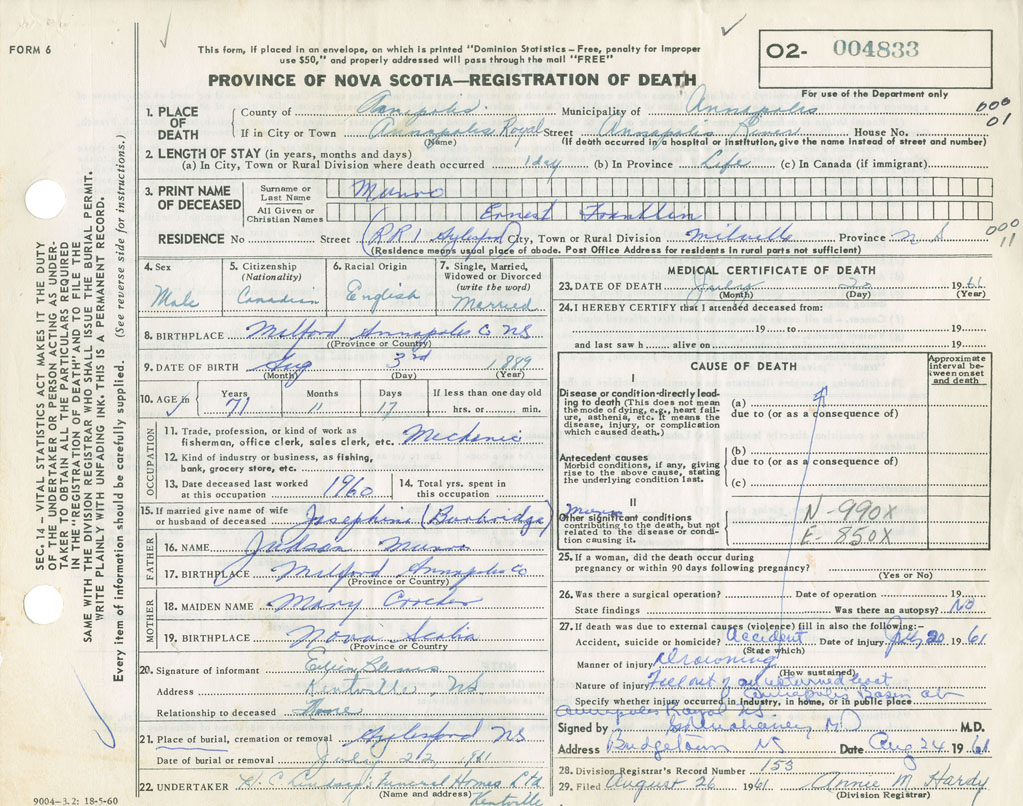 FORM 6
This form, if placed in an envelope, on which is printed "Dominion Statistics – Free, penalty for improper
use $50," and properly addressed will pass through the mail "FREE"
PROVINCE OF NOVA SCOTIA—REGISTRATION OF DEATH
O2- 004833
For use of the Department only
SEC. 14 – VITAL STATISTICS ACT MAKES IT THE DUTY
OF THE UNDERTAKER OR PERSON ACTING AS UNDER-
TAKER TO OBTAIN ALL THE PARTICULARS REQUIRED
IN THE "REGISTRATION OF DEATH" AND TO FILE THE
SAME WITH THE DIVISION REGISTRAR WHO SHALL ISSUE THE BURIAL PERMIT.
WRITE PLAINLY WITH UNFADING INK. THIS IS A PERMANENT RECORD.
Every item of information should be carefully supplied. (See reverse side for instructions.)
1. PLACE OF DEATH County of Annapolis. Municipality of Annapolis 000 01
If in City or Town Annapolis Royal Street Annapolis River House No.
(Name) (If death occurred in a hospital or institution, give the name instead of street and number)
2. LENGTH OF STAY (in years, months and days)
(a) In City, Town or Rural Division where death occurred 1 day (b) In Province Life (c) In Canada (if immigrant)
3. PRINT NAME OF DECEASED Surname or Last Name Munro
All Given or Christian Names Ernest Franklin
RESIDENCE No Street (RR1 Aylesford) City, Town or Rural Division Milville Province N S 000 11
(Residence means usual place of abode. Post Office Address for residents in rural parts not sufficient)
4. Sex Male
5. Citizenship (Nationality) Canadian
6. Racial Origin English
7. Single, Married, Widowed or Divorced (write the word) Married
8. BIRTHPLACE Milford Annapolis Co NS
(Province or Country)
9. DATE OF BIRTH Aug 3rd 1889
(Month) (Day) (Year)
10. AGE in Years 71 Months 11 Days 17 If less than one day old hrs. or min.
OCCUPATION
11. Trade, profession, or kind of work as fisherman, office clerk, sales clerk, etc. Mechanic
12. Kind of industry or business, as fishing, bank, grocery store, etc.
13. Date deceased last worked at this occupation 1960 14. Total yrs. spent in this occupation
15. If married give name of wife or husband of deceased Josephine (Burbridge)
FATHER
16. NAME Judson Munro
17. BIRTHPLACE Milford Annapolis Co
(Province or Country)
MOTHER
18. MAIDEN NAME Mary Crocker
19. BIRTHPLACE Nova Scotia
(Province or Country)
20. Signature of informant
Address Kentville NS
Relationship to deceased None
21. Place of burial, cremation or removal Aylesford NS
Date of burial or removal July 22 1961
22. UNDERTAKER H. C. Lindsay's Funeral Homes Ltd
(Name and address) Kentville
9004–3.2: 18-5-60
MEDICAL CERTIFICATE OF DEATH
23. DATE OF DEATH July 20 1961
(Month) (Day) (Year)
24. I HEREBY CERTIFY that I attended deceased from:
19 to 19
and last saw h alive on 19
CAUSE OF DEATH
Approximate interval between onset and death
I
Disease or condition directly leading to death (This does not mean the mode of dying, e.g., heart failure, asthenia, etc. It means the disease, injury, or complication which caused death.)
(a)
due to (or as a consequence of)
Antecedent causes
Morbid conditions, if any, giving rise to the above cause, stating the underlying condition last.
(b)
due to (or as a consequence of)
(c)
II
Other significant conditions contributing to the death, but not related to the disease or condition causing it.
N-990X
E-850X
25. If a woman, did the death occur during
pregnancy or within 90 days following pregnancy?
(Yes or No)
26. Was there a surgical operation? Date of operation 19
State findings Was there an autopsy? No
27. If death was due to external causes (violence) fill in also the following:—
Accident, suicide or homicide? Accident Date of injury July 20 1961
(State which)
Manner of injury Drowning
(How sustained)
Nature of injury Fell out of overturned boat
Specify whether injury occurred in industry, in home, or in public place Annapolis Basin at
Annapolis Royal NS
Signed by M.D. M.D.
Address Bridgetown NS Date Aug 24 1961
28. Division Registrar's Record Number 153
29. Filed August 26 1961 Annie M. Hardy
(Division Registrar)